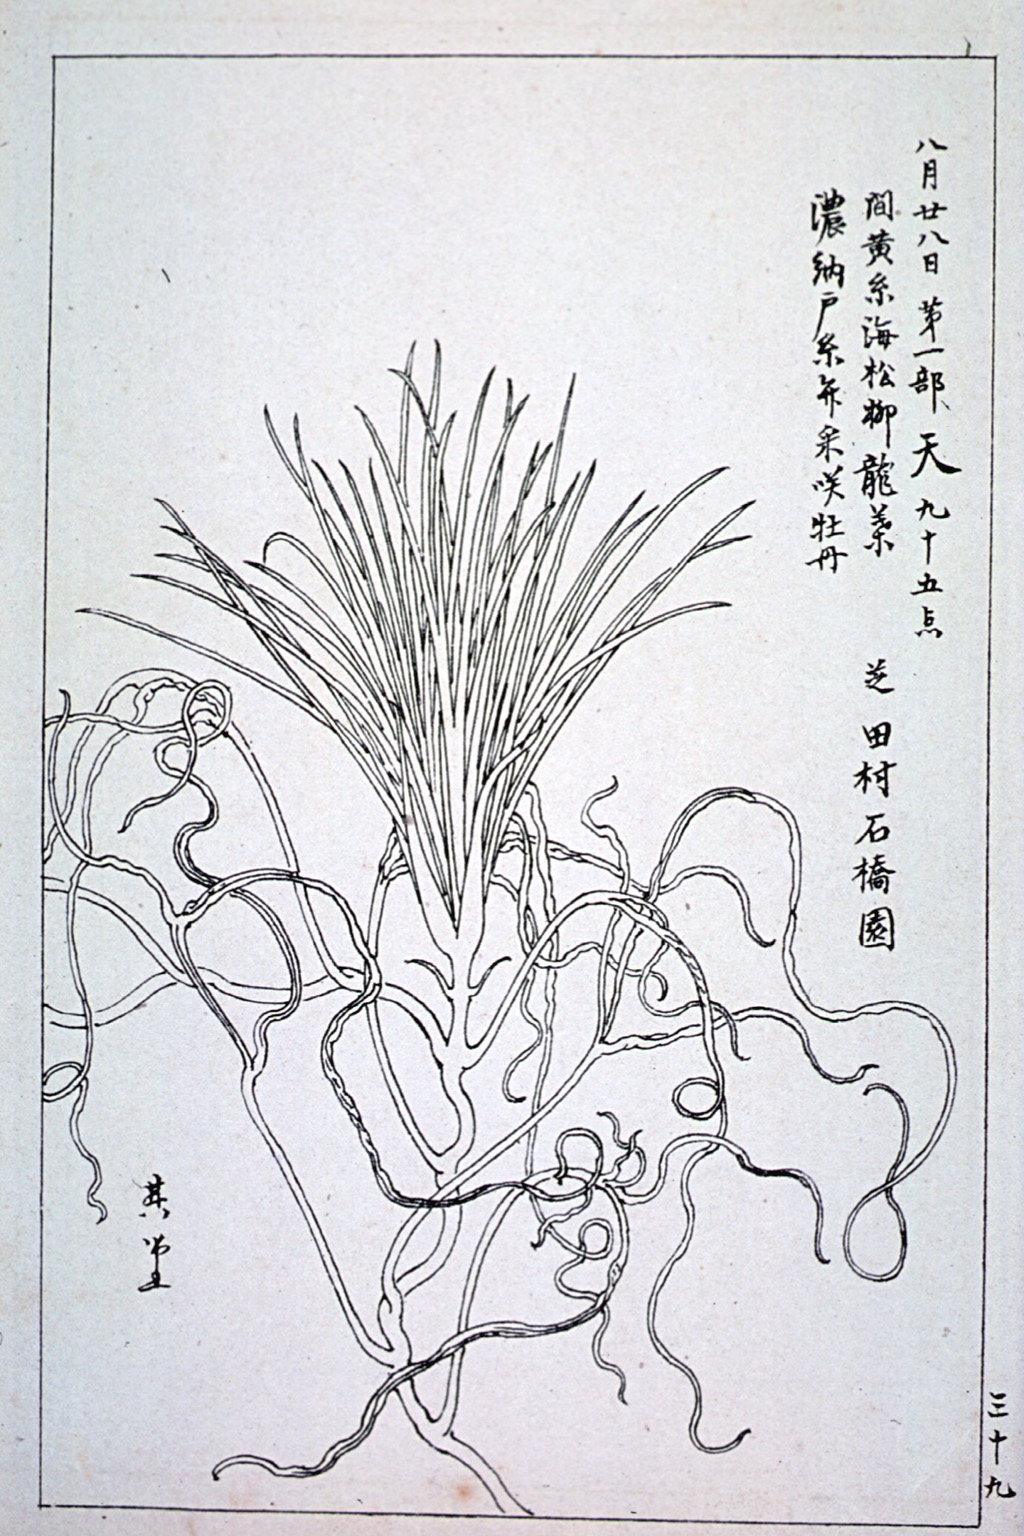 八月廿八日 第一部、天 九十五点
間黄糸海松柳龍葉 芝 田村石橋園
濃納戸糸弁采咲牡丹
其堂
三十九